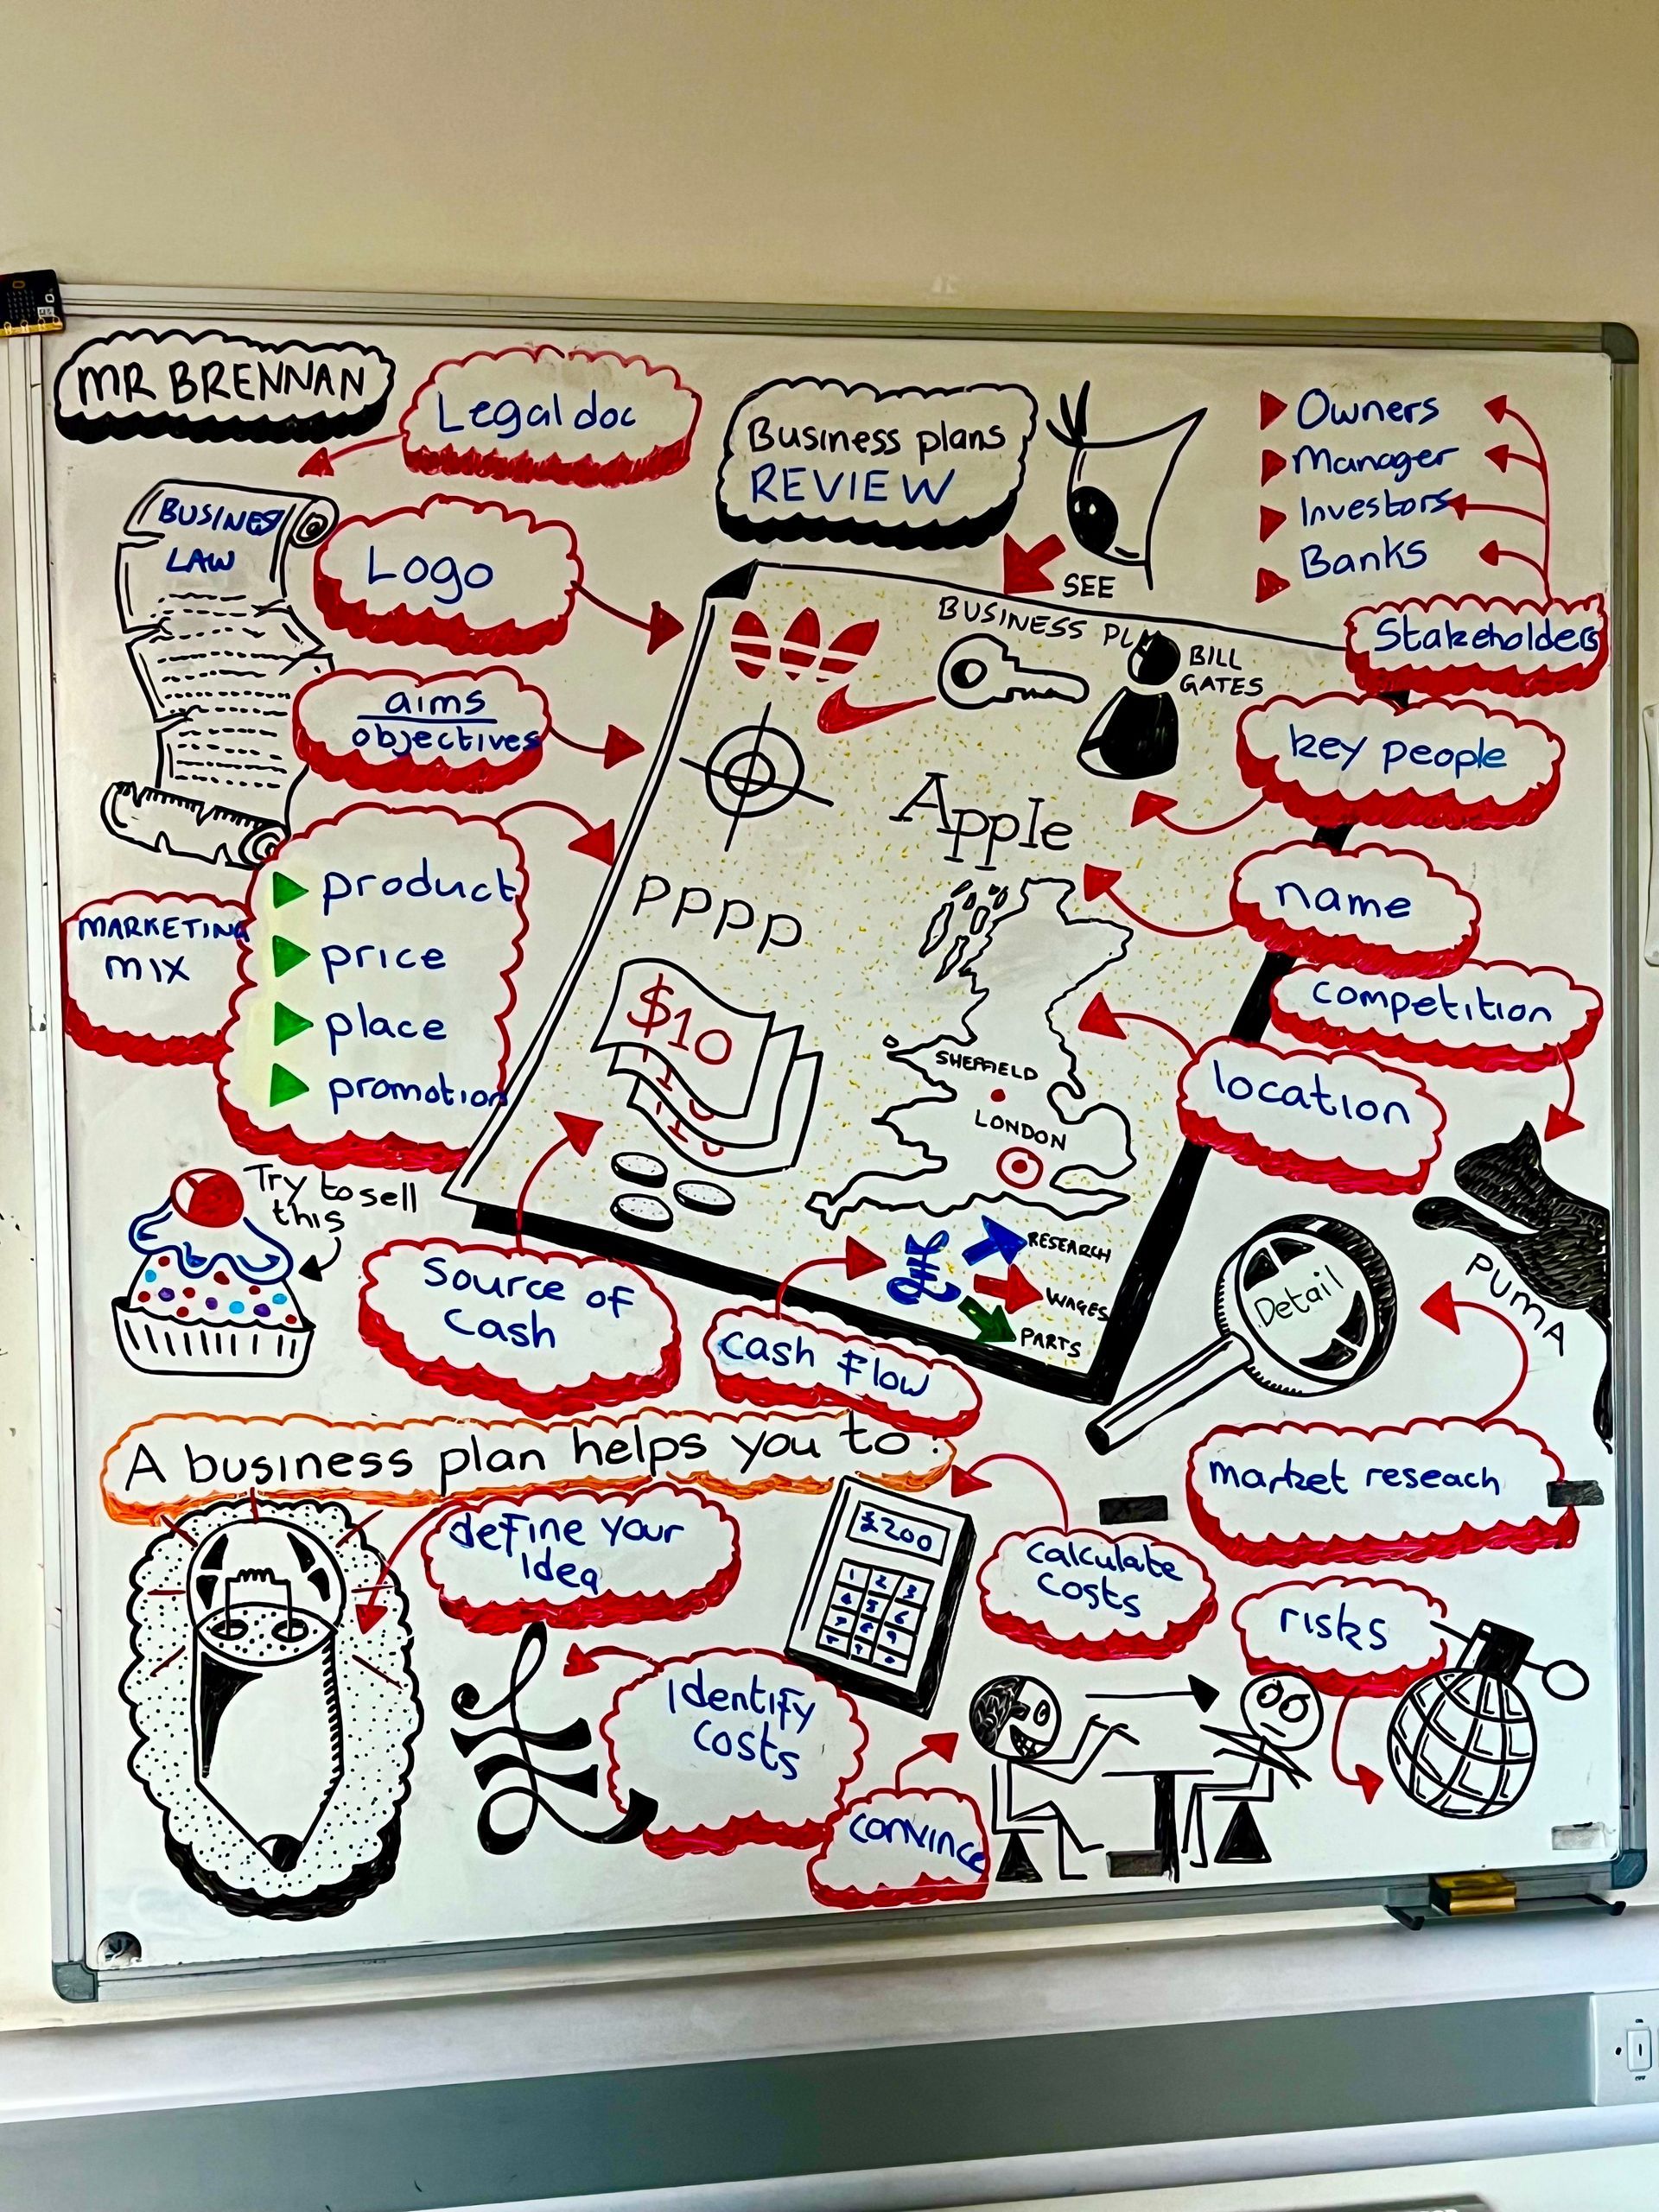 MR BRENNAN
Legal doc
Business plans
REVIEW
SEE
Owners
Manager
Investors
Banks
Stakeholders
BUSINES
LAW
Logo
aims
objectives
BUSINESS PLA
BILL
GATES
key people
Apple
name
MARKETING
MIX
product
price
place
promotion
PPPP
$10
competition
location
SHEFFIELD
LONDON
Try to sell
this
Source of
Cash
Cash Flow
£
RESEARCH
WAGES
PARTS
Detail
PUMA
market reseach
A business plan helps you to:
define your
idea
£200
1 2 3
calculate
costs
risks
£
Identify
costs
convince